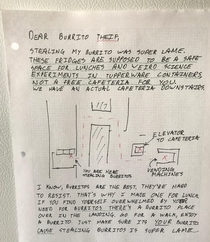 DEAR BURRITO THEIF,
STEALING MY BURRITO WAS SUPER LAME.
THESE FRIDGES ARE SUPPOSED TO BE A SAFE
SPACE FOR LUNCHES AND WEIRD SCIENCE
EXPERIMENTS IN TUPPERWARE CONTAINERS,
NOT A FREE CAFETERIA FOR YOU.
WE HAVE AN ACTUAL CAFETERIA DOWNSTAIRS.
ELEVATOR
TO CAFETERIA
YOU ARE HERE
STEALING BURRITOS
VENDING
MACHINES
I KNOW, BURRITOS ARE THE BEST, THEY'RE HARD
TO RESIST. THAT'S WHY I MADE ONE FOR LUNCH.
IF YOU FIND YOURSELF OVERWHELMED BY YOUR
NEED FOR BURRITOS, THERE'S A BURRITO PLACE
OVER IN THE LANDING, GO FOR A WALK, ENJOY
A BURRITO. JUST MAKE SURE IT'S YOUR BURRITO
CAUSE STEALING BURRITOS IS SUPER LAME.